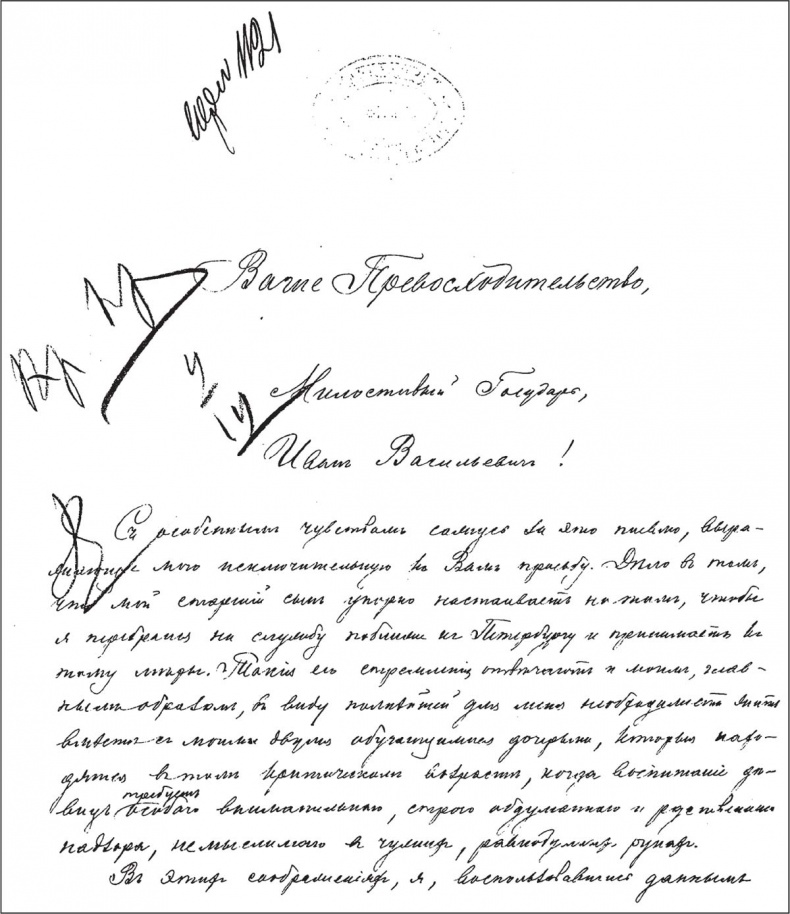 Ваше Превосходительство,
Милостивый Государь,
Иванъ Васильевичъ!
Съ особеннымъ чувствомъ сажусь за это письмо, выра-
жающее мою исключительную къ Вамъ просьбу. Дѣло въ томъ,
что мой старшій сынъ упорно настаиваетъ на томъ, чтобы
я перебрался на службу поближе къ Петербургу и принимаетъ къ
тому мѣры. Такія его стремленія отвѣчаютъ и моимъ, глав-
нымъ образомъ, въ виду полнѣйшей для меня необходимости жить
вмѣстѣ съ моими двумя обучающимися дочерьми, которыя нахо-
дятся въ томъ критическомъ возрастѣ, когда воспитаніе дѣ-
вицъ требуетъ особаго внимательнаго, строго обдуманнаго и родственнаго
надзора, немыслимаго въ чужихъ, равнодушныхъ рукахъ.
Въ этихъ соображеніяхъ, я, воспользовавшись даннымъ